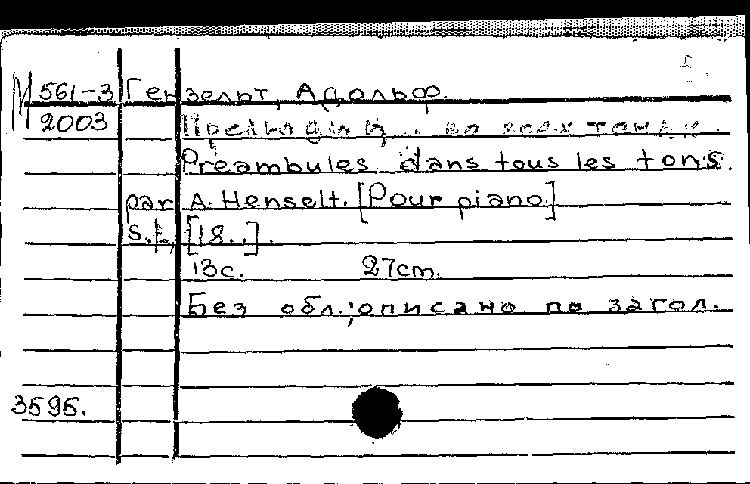 М 561-3 Гензельт, Адольф.
2003 Прелюдии, . во всех тонах.
Préambules dans tous les tons
par A. Henselt. [Pour piano]
S.l., [18..].
13с. 27cm.
Без обл.; описано по загол.
3595.